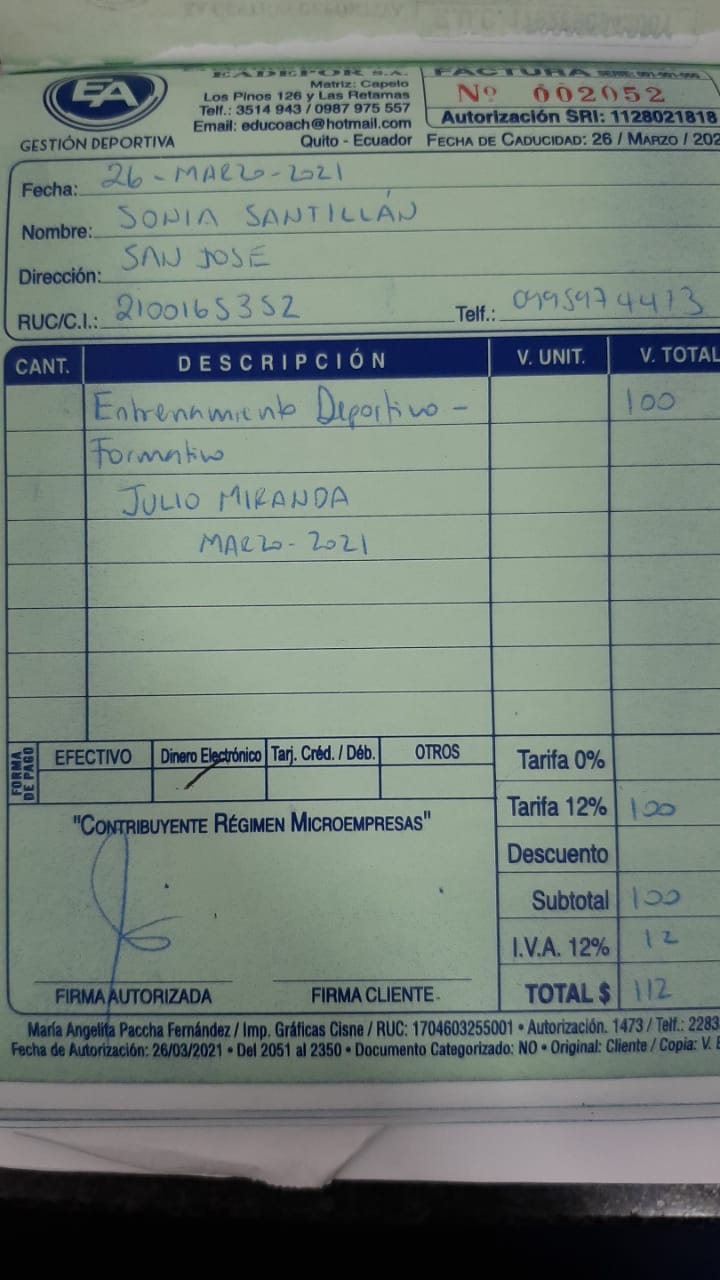 EA
GESTIÓN DEPORTIVA
Matriz: Capelo
Los Pinos 126 y Las Retamas
Telf.: 3514 943 / 0987 975 557
Email: educoach@hotmail.com
Quito - Ecuador
FACTURA
Nº 002052
Autorización SRI: 1128021818
FECHA DE CADUCIDAD: 26 / MARZO / 202
Fecha: 26 - MARZO - 2021
Nombre: SONIA SANTILLÁN
Dirección: SAN JOSE
RUC/C.I.: 2100165352 Telf.: 0995974473
CANT. DESCRIPCIÓN V. UNIT. V. TOTAL
Entrenamiento Deportivo - 100
Formativo
JULIO MIRANDA
MARZO - 2021
FORMA DE PAGO
EFECTIVO Dinero Electrónico Tarj. Créd. / Déb. OTROS
Tarifa 0%
Tarifa 12% 100
"CONTRIBUYENTE RÉGIMEN MICROEMPRESAS"
Descuento
Subtotal 100
I.V.A. 12% 12
TOTAL $ 112
FIRMA AUTORIZADA FIRMA CLIENTE
María Angelita Paccha Fernández / Imp. Gráficas Cisne / RUC: 1704603255001 • Autorización. 1473 / Telf.: 2283
Fecha de Autorización: 26/03/2021 • Del 2051 al 2350 • Documento Categorizado: NO • Original: Cliente / Copia: V. E